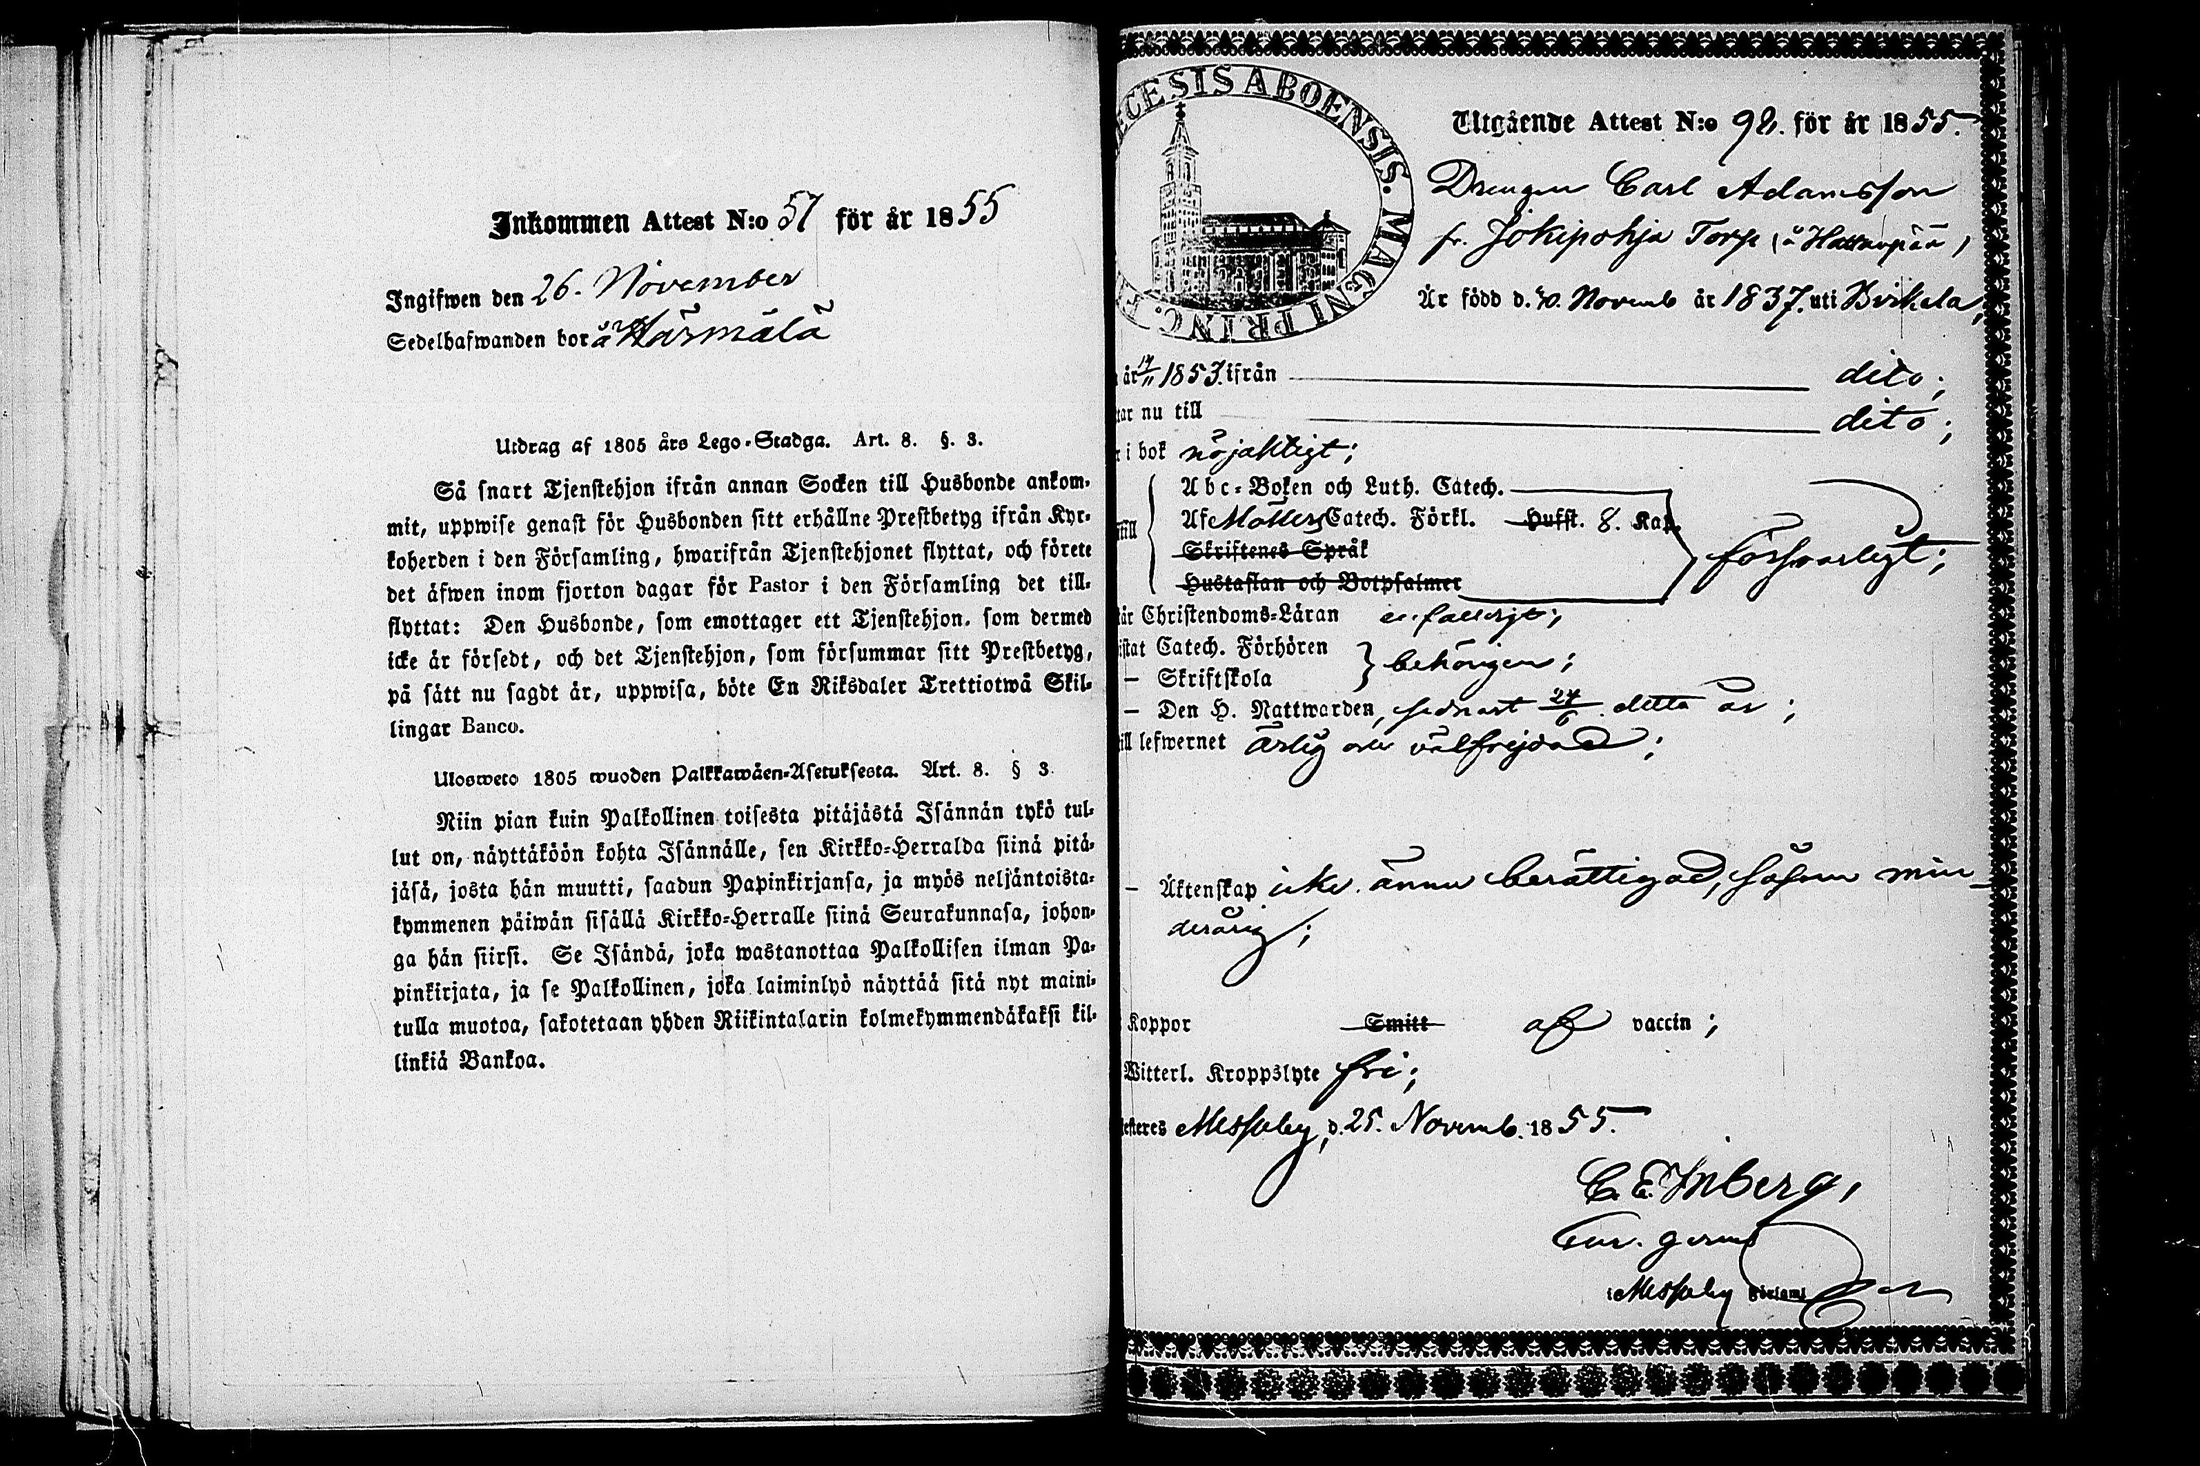 Inkommen Attest N:o 57 för år 1855
Ingifwen den 26. November
Sedelhafwanden bor å Härmälä
Utdrag af 1805 års Lego-Stadga. Art. 8. §. 3.
Så snart Tjenstehjon ifrån annan Socken till Husbonde ankom-
mit, uppwise genast för Husbonden sitt erhållne Prestbetyg ifrån Kyr-
koherden i den Församling, hwarifrån Tjenstehjonet flyttat, och förete
det äfwen inom fjorton dagar för Pastor i den Församling det till-
flyttat: Den Husbonde, som emottager ett Tjenstehjon. som dermed
icke är försedt, och det Tjenstehjon, som försummar sitt Prestbetyg,
på sätt nu sagdt är, uppwisa, böte En Riksdaler Trettiotwå Skil-
lingar Banco.
Ulosweto 1805 wuoden Palkkawäen-Asetuksesta. Art. 8. § 3.
Niin pian kuin Palkollinen toisesta pitäjästä Isännän tykö tul-
lut on, näyttäköön kohta Isännälle, sen Kirkko-Herralda siinä pitä-
jäsä, josta hän muutti, saadun Papinkirjansa, ja myös neljäntoista-
kymmenen päiwän sisällä Kirkko-Herralle siinä Seurakunnasa, johon-
ga hän siirsi. Se Isändä, joka wastanottaa Palkollisen ilman Pa-
pinkirjata, ja se Palkollinen, joka laiminlyö näyttää sitä nyt maini-
tulla muotoa, sakotetaan yhden Riikintalarin kolmekymmendäkaksi kil-
linkiä Bankoa.
ECESIS ABOENSIS. MAGNI PRINC. F
Utgående Attest N:o 92. för år 1855.
Drengen Carl Adamsson
fr. Jokipohja Torp (å Hattanpää)
Är född d. 10. Novemb år 1837. uti Birkala,
år 14/11 1853. ifrån dito;
tar nu till dito;
i bok nöjaktigt;
Abc-Boken och Luth. Catech.
Af Möllers Catech. Förkl. Husst. 8. Kap.
Skriftenes Språk
Hustaflan och Botpsalmer
försvarligt;
år Christendoms-Läran
istat Catech. Förhören
— Skriftskola
behörigen;
— Den H. Nattwarden, sednast 24/6 detta år;
ill lefwernet ärlig och välfrejdad;
— Äktenskap icke ännu berättigad, såsom min-
derårig;
Koppor Smitt af vaccin;
Witterl. Kroppslyte fri;
testeres Messuby, d. 25. Novemb. 1855.
C. E. Inberg,
i Messuby Församl